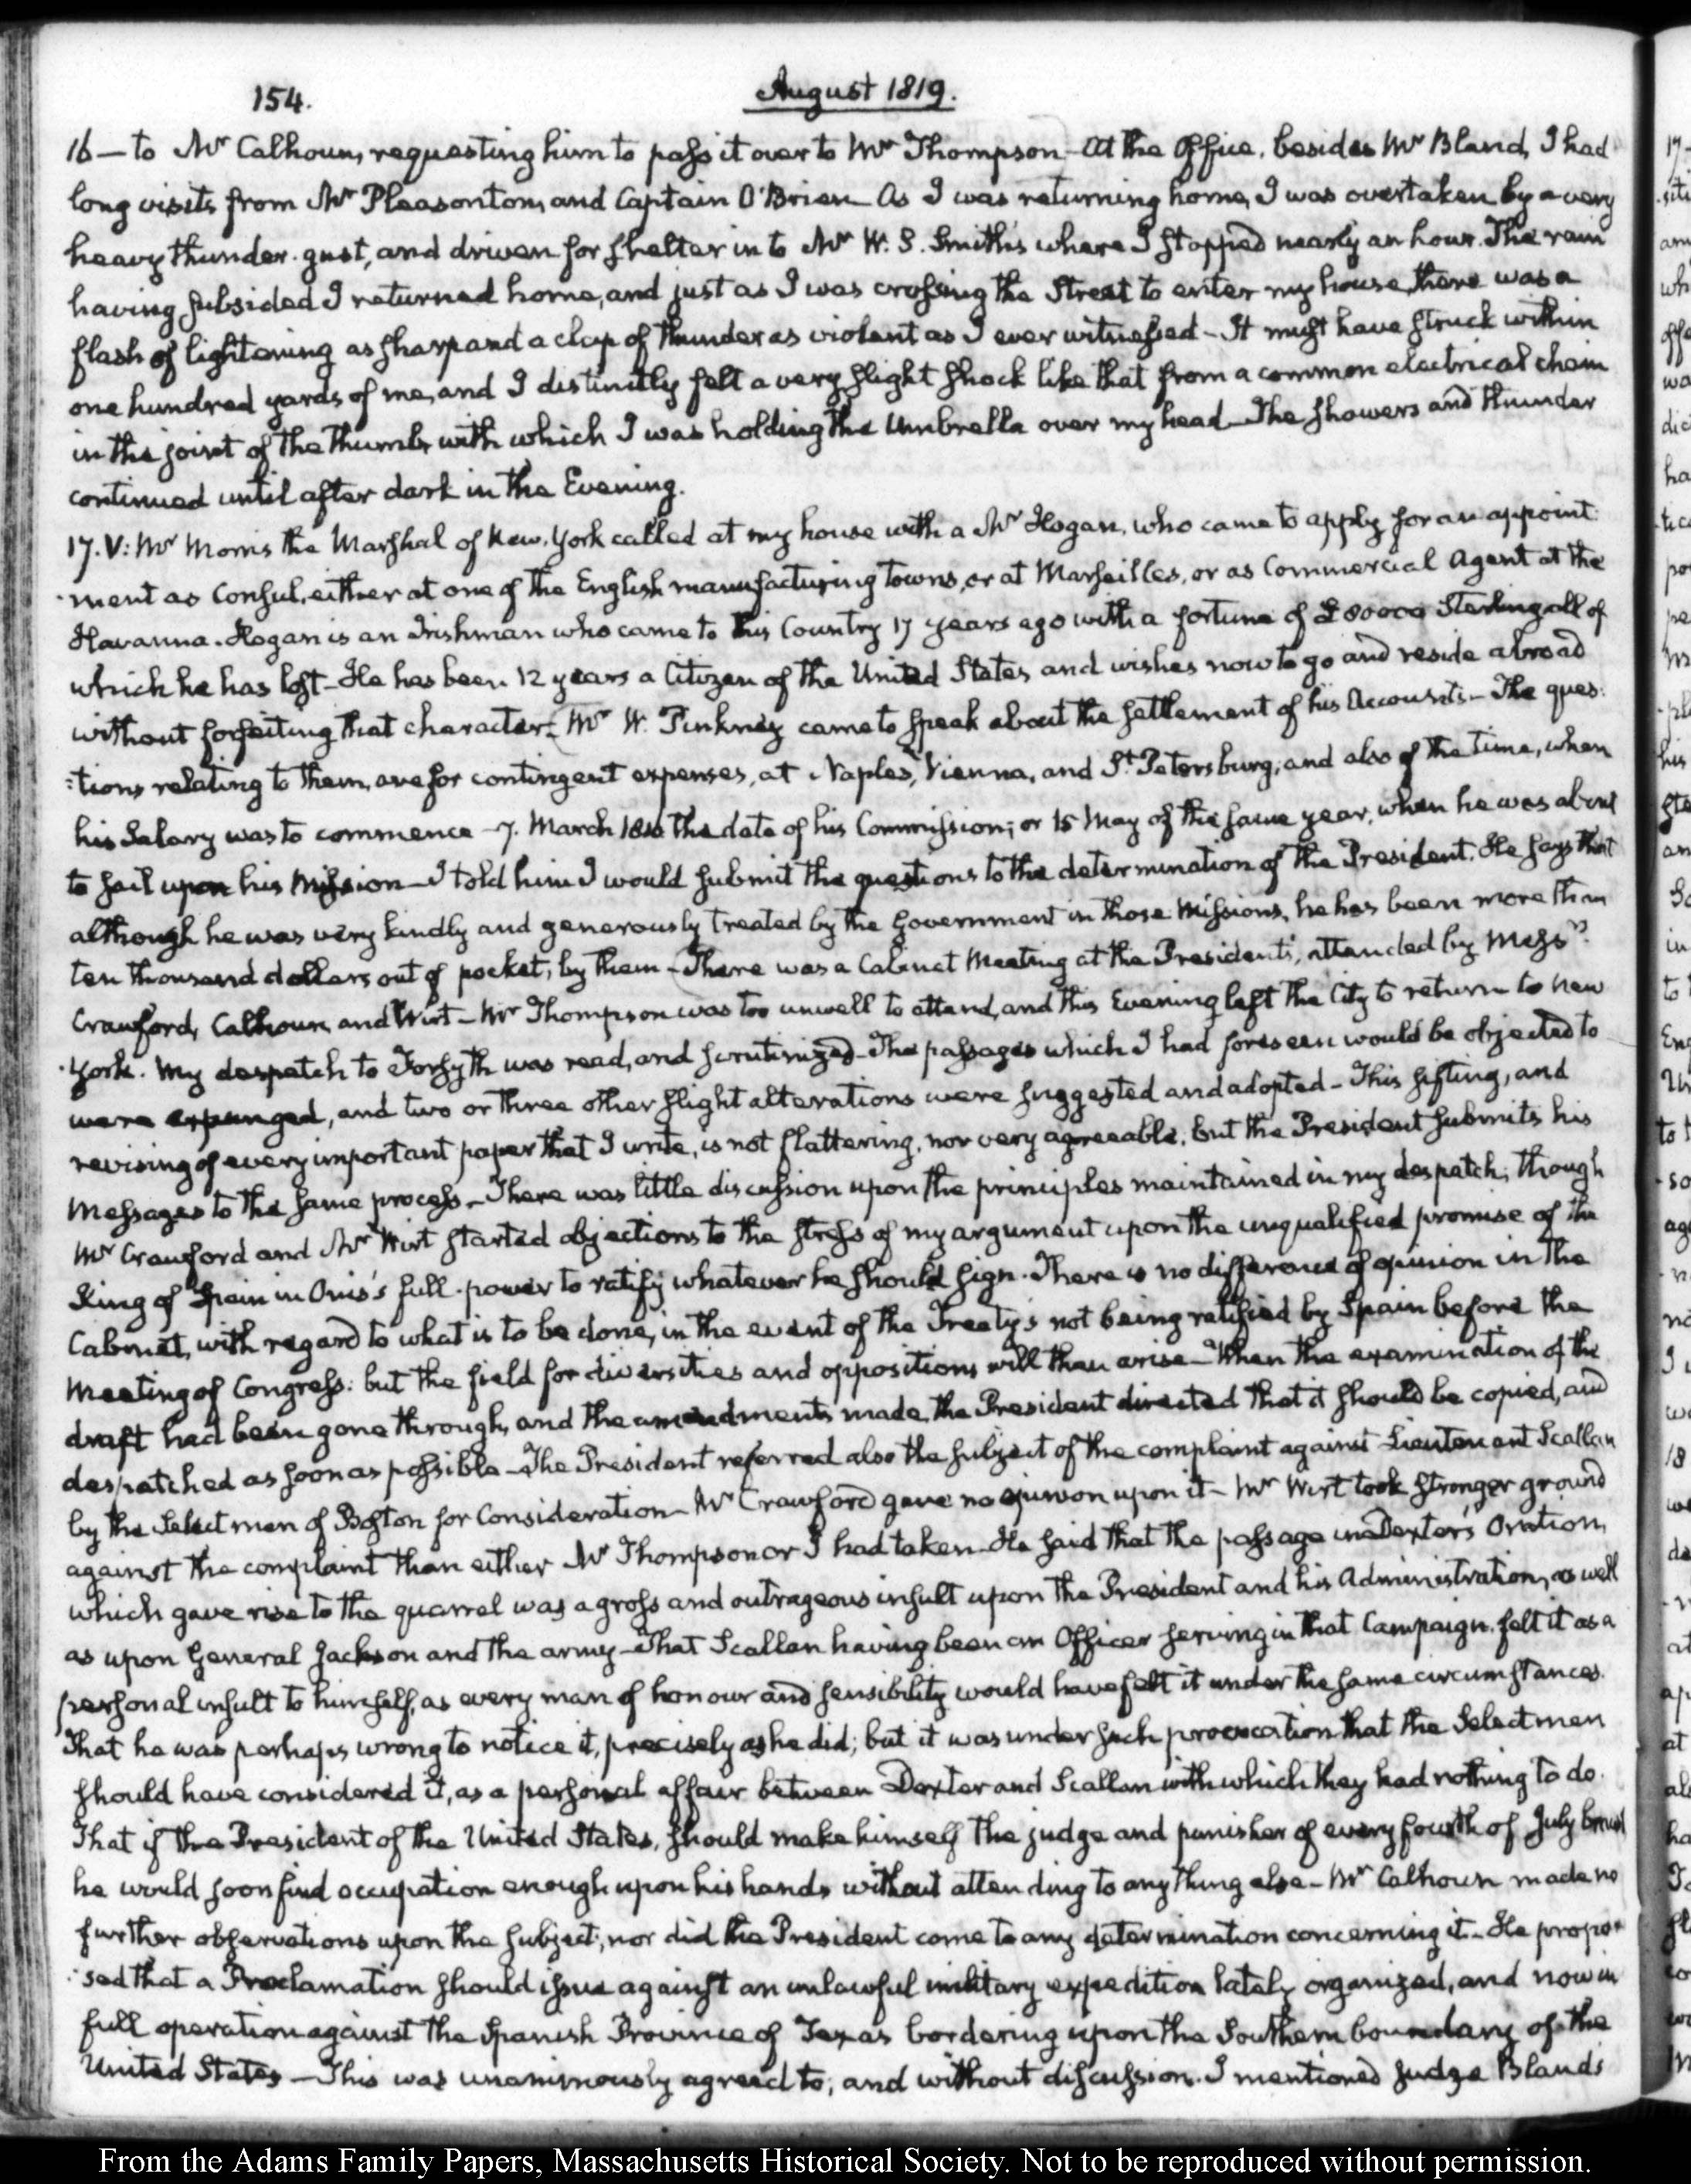 154.
August 1819.
16 — to Mr Calhoun, requesting him to pass it over to Mr Thompson — At the Office, besides Mr Bland, I had
long visits from Mr Pleasonton, and Captain O'Brien — As I was returning home, I was overtaken by a very
heavy thunder-gust, and driven for shelter in to Mr W. S. Smith's where I stopped nearly an hour. The rain
having subsided I returned home, and just as I was crossing the Street to enter my house, there was a
flash of lightening as sharp and a clap of thunder as violent as I ever witnessed — It must have struck within
one hundred yards of me, and I distinctly felt a very slight shock like that from a common electrical chain
in the joint of the thumb, with which I was holding the Umbrella over my head — The showers and thunder
continued until after dark in the Evening.
17. V: Mr Morris the Marshal of New-York called at my house with a Mr Hogan, who came to apply for an appoint-
-ment as Consul, either at one of the English manufacturing towns, or at Marseilles, or as Commercial Agent at the
Havanna. Hogan is an Irishman who came to this Country 17 years ago with a fortune of £80000 Sterling all of
which he has lost — He has been 12 years a Citizen of the United States, and wishes now to go and reside abroad
without forfeiting that character — Mr W. Pinkney came to speak about the settlement of his Accounts — The ques-
-tions relating to them, are for contingent expenses, at Naples, Vienna, and St. Petersburg, and also of the time, when
his Salary was to commence — 7. March 1816 the date of his Commission; or 15 May of the same year, when he was about
to sail upon his Mission — I told him I would submit the questions to the determination of the President. He says that
although he was very kindly and generously treated by the Government in those Missions, he has been more than
ten thousand dollars out of pocket, by them — There was a Cabinet Meeting at the President's, attended by Messrs.
Crawford, Calhoun, and Wirt — Mr Thompson was too unwell to attend, and this Evening left the City to return to New
-York. My despatch to Forsyth was read, and scrutinized — The passages which I had foreseen would be objected to
were expunged, and two or three other slight alterations were suggested and adopted — This sifting, and
revising of every important paper that I write, is not flattering, nor very agreeable, but the President submits his
Messages to the same process — There was little discussion upon the principles maintained in my despatch; though
Mr Crawford and Mr Wirt started objections to the stress of my argument upon the unqualified promise of the
King of Spain in Onis's full-power to ratify whatever he should sign. There is no difference of opinion in the
Cabinet, with regard to what is to be done, in the event of the Treaty's not being ratified by Spain before the
meeting of Congress: but the field for diversities and oppositions will then arise — When the examination of the
draft had been gone through, and the amendments made, the President directed that it should be copied, and
despatched as soon as possible — The President referred also the subject of the complaint against Lieutenant Scallan
by the Selectmen of Boston for Consideration — Mr Crawford gave no opinion upon it — Mr Wirt took stronger ground
against the complaint than either Mr Thompson or I had taken — He said that the passage in Dexter's Oration,
which gave rise to the quarrel was a gross and outrageous insult upon the President and his Administration, as well
as upon General Jackson and the army — That Scallan having been an Officer serving in that Campaign, felt it as a
personal insult to himself, as every man of honour and sensibility would have felt it under the same circumstances.
That he was perhaps wrong to notice it, precisely as he did; but it was under such provocation that the Selectmen
should have considered it, as a personal affair between Dexter and Scallan with which they had nothing to do.
That if the President of the United States, should make himself the judge and punisher of every fourth of July brawl
he would soon find occupation enough upon his hands without attending to any thing else — Mr Calhoun made no
further observations upon the subject; nor did the President come to any determination concerning it — He propo-
-sed that a Proclamation should issue against an unlawful military expedition lately organized, and now in
full operation against the Spanish Province of Texas bordering upon the Southern boundary of the
United States — This was unanimously agreed to; and without discussion. I mentioned Judge Bland's
From the Adams Family Papers, Massachusetts Historical Society. Not to be reproduced without permission.